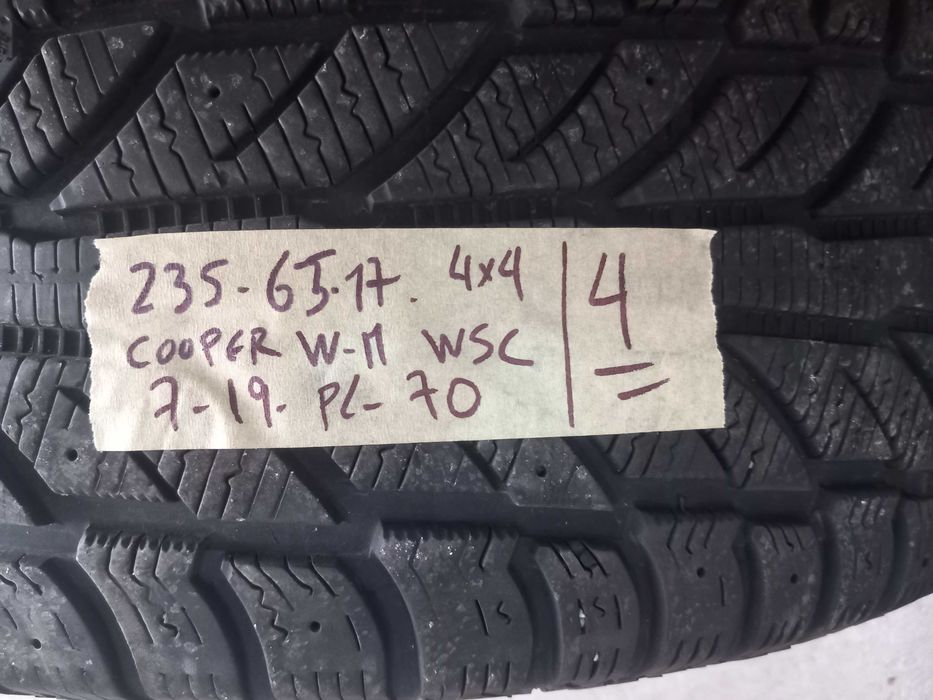 235-65-17. 4x4
COOPER W-M WSC
7-19- PL- 70
4